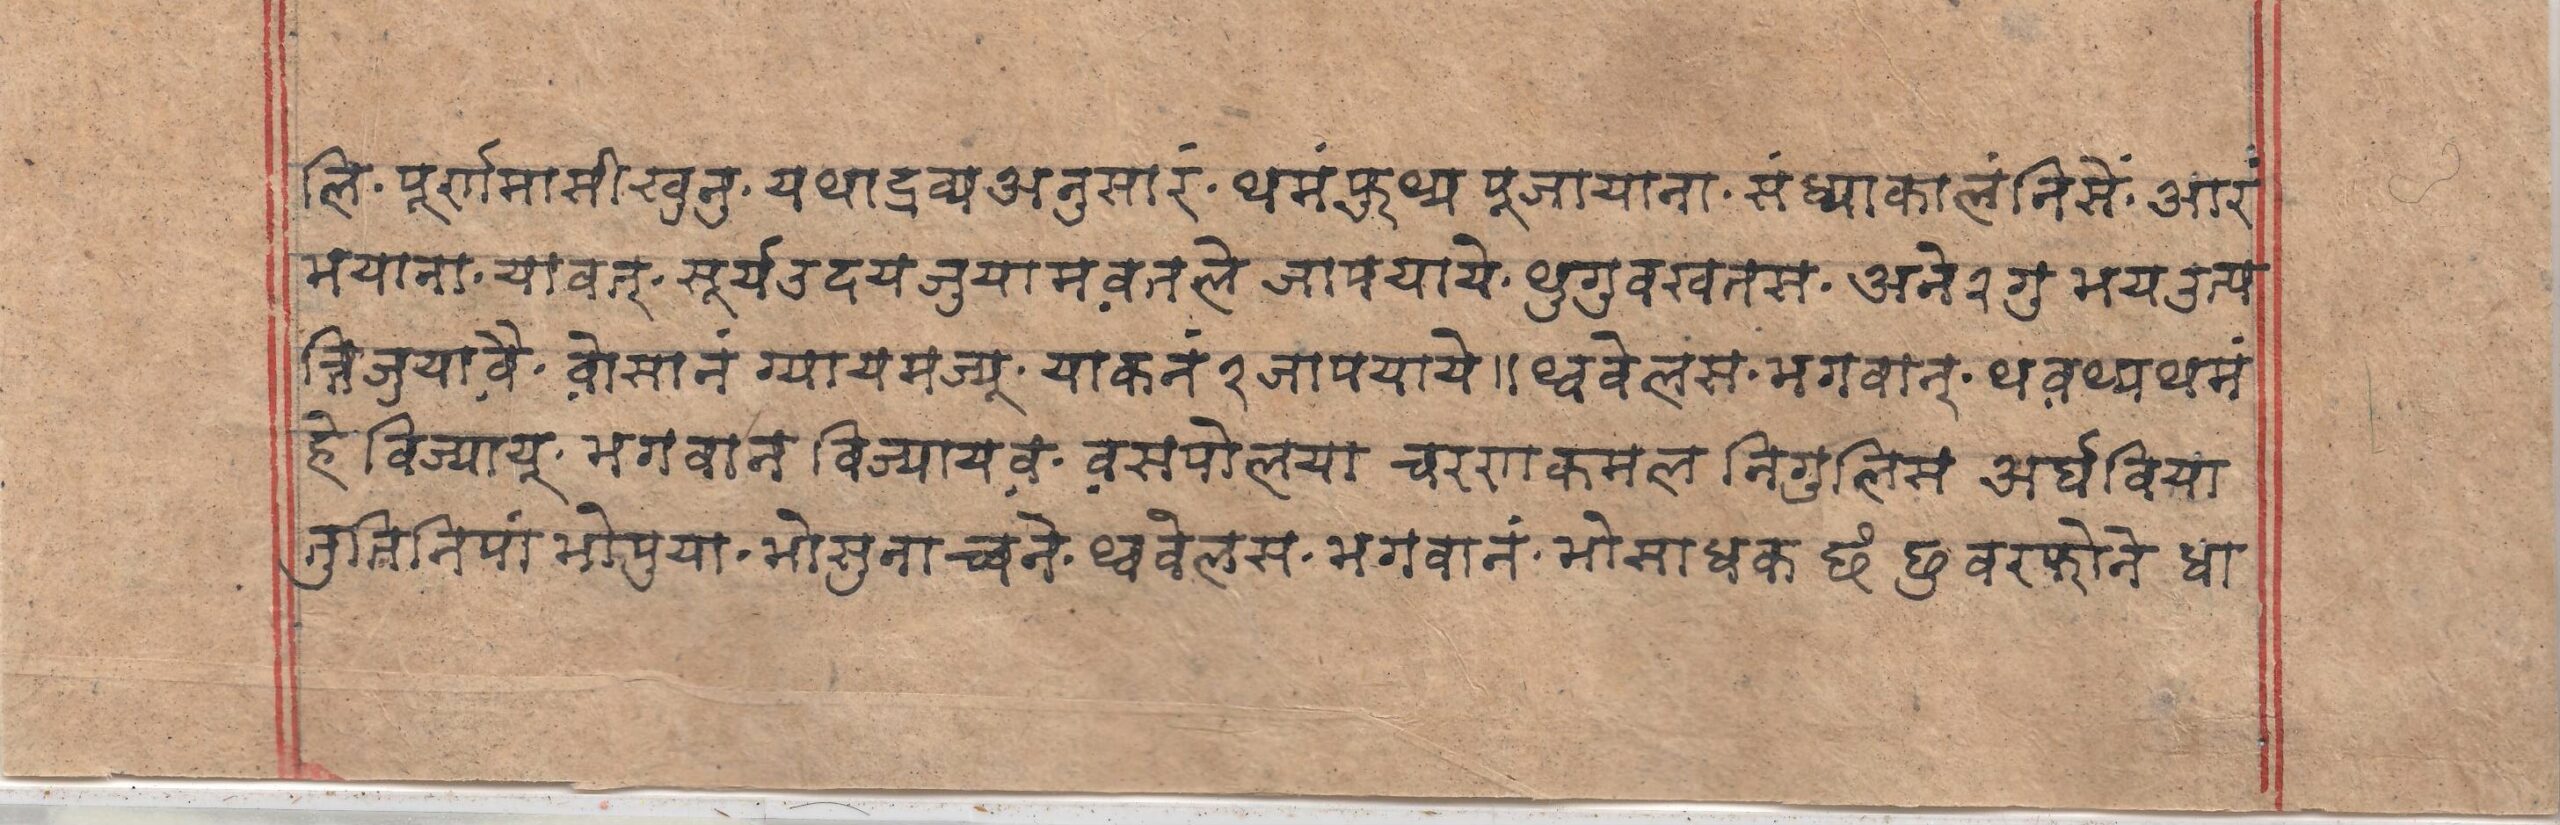 लि· पूर्णमासीखुनु· यथाद्रव्यअनुसारं· थमंफुथ्य पूजायाना· संध्याकालंनिसें· आरं
भयाना· यावत्· सूर्यउदयजुयामव़तले जापयाये· थुगुवखतस· अने२गु भयउत्प
त्तिजुयाव़ै· व़ोसानं ग्यायमज्यू· याकनं२जापयाये॥ थ्ववेलस· भगवान्· थव़थ्यथमं
हे विज्यायू· भगवान विज्यायव़· व़सपोलया चरणकमल निगुलिस अर्घविया
तुतिनिपां भोपुया· भोसुनाच्वने· थ्ववेलस· भगवानं· भोसाधक छं छु वरफोने धा